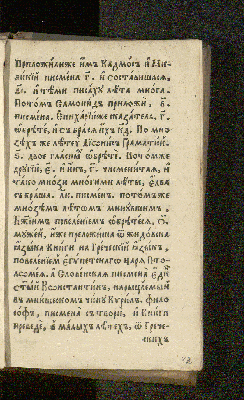 Приложи́лиже и҆́мъ Ка́дмосъ и҆ Ми-
писмена̀ г҃. и҆ соста́вишася,
и҆ тѣ́ми писа́хꙋ лѣ́та многа.
Пото́мъ Самони́дъ приложѝ, в҃.
писмена̀. Є҆пиха́рїйже сказа́тель, г҃.
ѡ҆брѣ́те, и҆ събра́ся и҆́хъ к҃д. По мно́-
зѣ́хъ же лѣ́тех Дїѡни́съ Грамати́къ.
ѕ҃. двое гла́сна ѡ҆брѣ́тѐ. Пото́мже
дрꙋгі́й, є҃. и҆ и҆́нъ, г҃. числени́тая, и҆
та́ко мно́зи мно́гими лѣ́ты, є҆два̀
събра́ша. л҃и. писмен. пото́мъже
мно́зѣмъ лѣ́томъ минꙋ́вшимъ,
Бж҃їимъ повелѣ́нїемъ ѡ҆брѣто́шася, о҃.
мꙋже́й, и҆̀же преложи́ша ѿ жидо́вска
ꙗ҆зы́ка Кни́ги на Гре́ческїй ꙗ҆зы́къ,
повелѣ́нїем є҆гѵ́петскагѡ царя̀ Пто-
ломе́я. а҆ Слове́нская писмена̀ є҆ди́нъ
ст҃ы́й Кѡнстанти́нъ, нарица́емый
въ мни́шескомъ чи́нꙋ Кѷри́лъ. фило-
со́фъ, писмена̀ сътворѝ, и҆ Кни́ги
преведѐ, в ма́лыхъ лѣ́тѣхъ, ѿ Гре́че-
скихъ